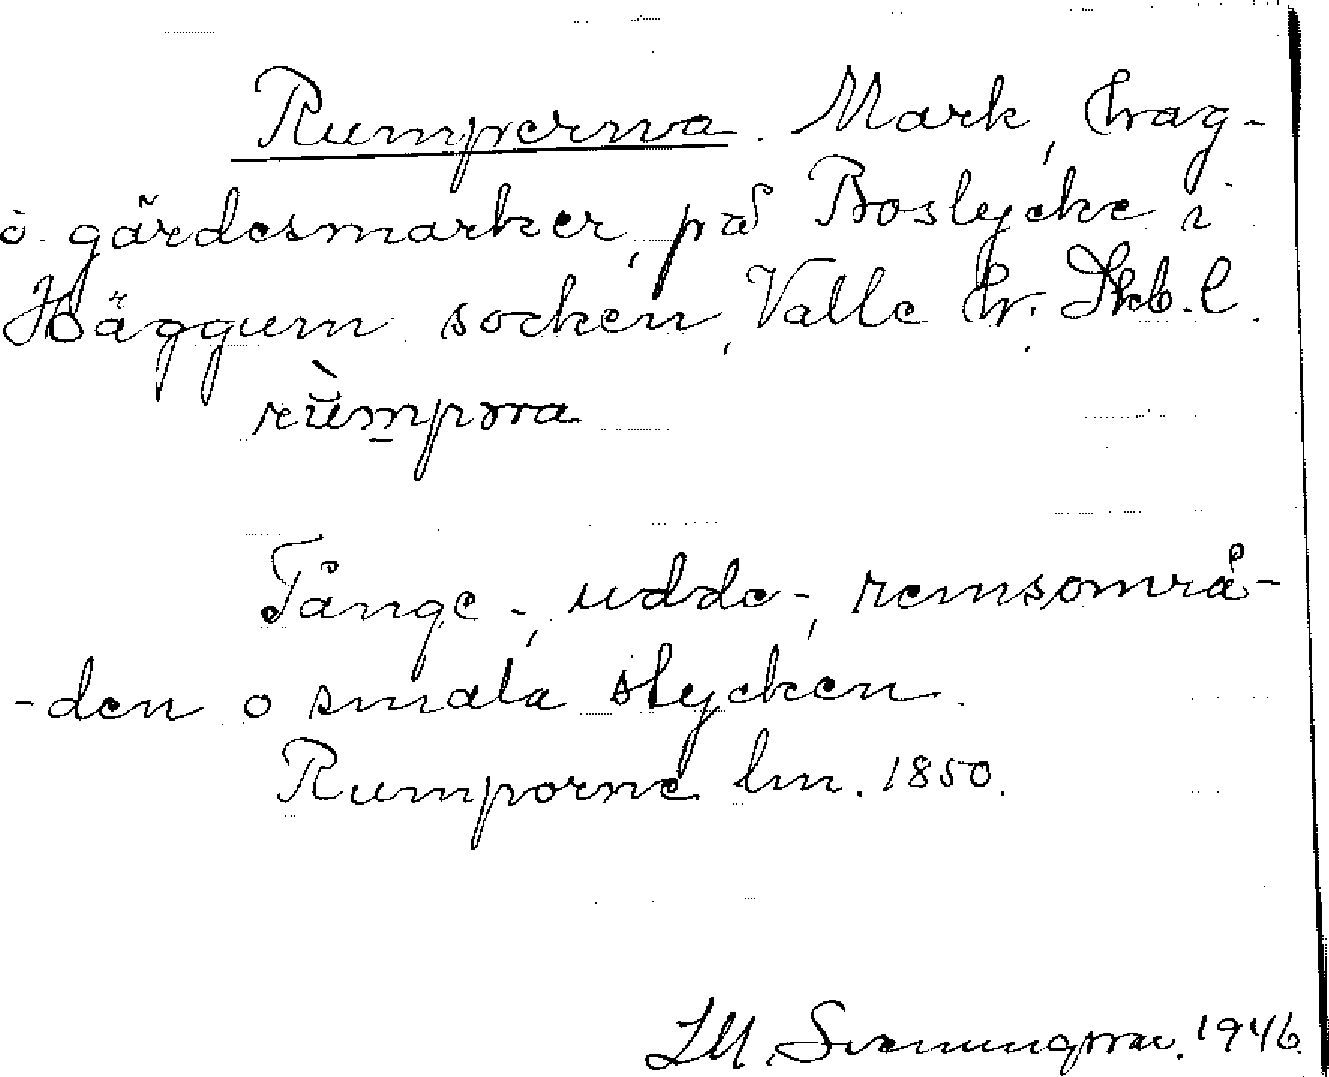 Rumperna. Mark, hag-
o gärdesmarker, på Boslycke i
Häggum socken, Valle hr. Skb. l.
rùmpra
Tånge-, udde-, remsområ-
-den o smala stycken.
Rumporne lm. 1850.
LM. Svenungsson. 1946.